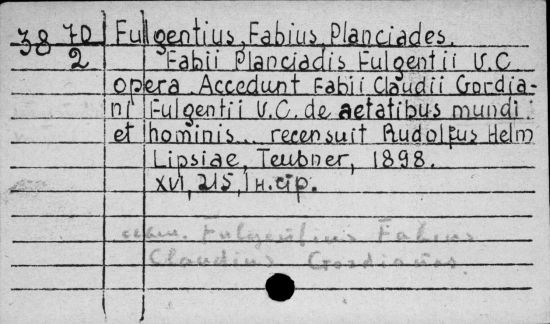 38 70/2 Fulgentius, Fabius, Planciades.
Fabii Planciadis Fulgentii V.C.
opera. Accedunt Fabii Claudii Gordia-
ni Fulgentii V.C. de aetatibus mundi
et hominis... recensuit Rudolfus Helm
Lipsiae, Teubner, 1898.
XVI, 215, 1 н. стр.
Fulgentius Fabius
Claudius Gordianus.